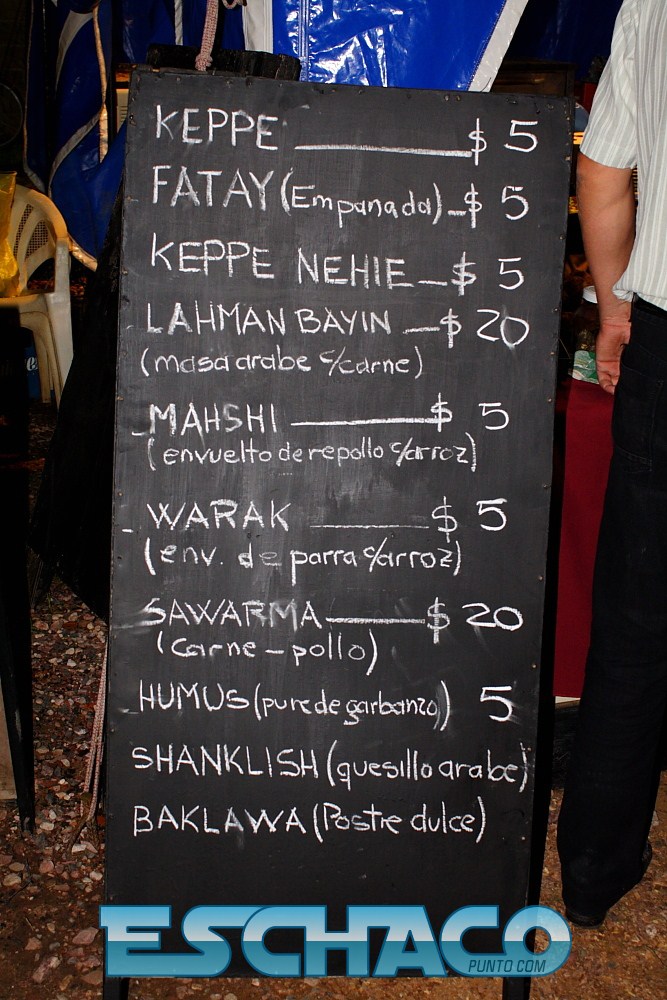 KEPPE $ 5
FATAY (Empanada) $ 5
KEPPE NEHIE $ 5
LAHMAN BAYIN $ 20
(masa arabe c/carne)
MAHSHI $ 5
(envuelto de repollo c/arroz)
WARAK $ 5
(env. de parra c/arroz)
SAWARMA $ 20
(carne - pollo)
HUMUS (pure de garbanzo) 5
SHANKLISH (quesillo arabe)
BAKLAWA (Postre dulce)
ESCHACO
PUNTO COM